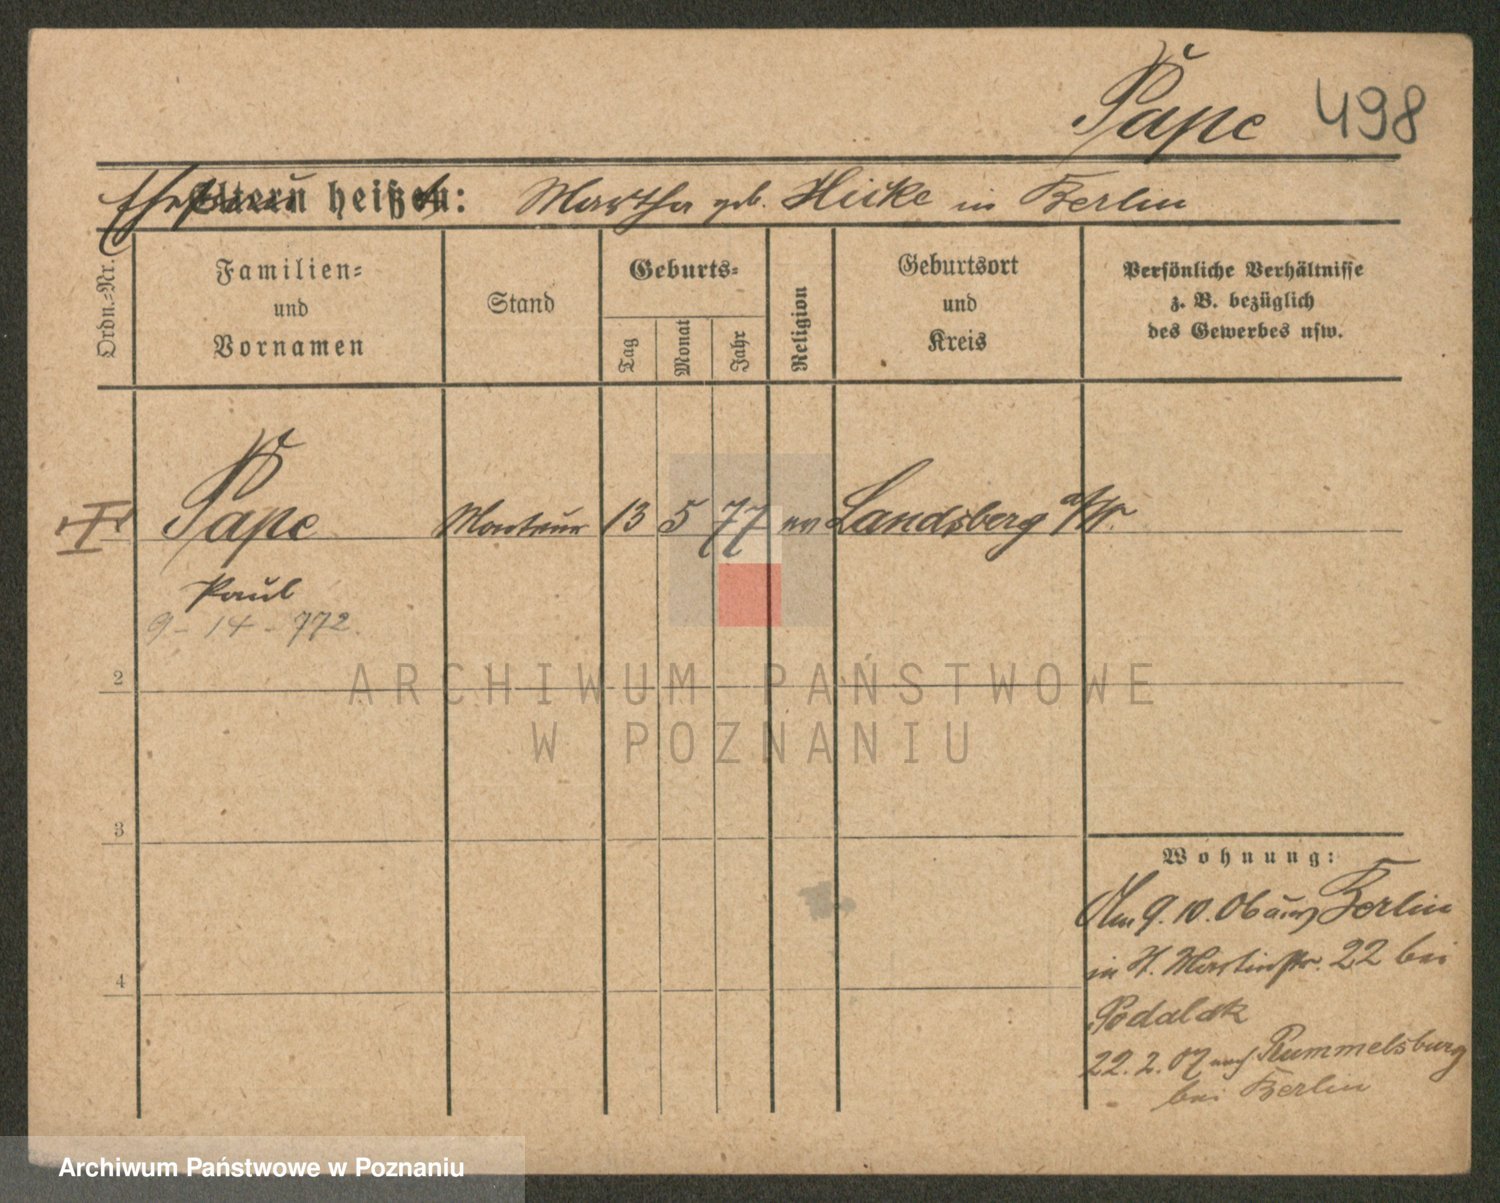 Pape 498
Ehefrau Eltern heißen: Martha geb. Hicke in Berlin
Ordn.-Nr.
Familien-
und
Vornamen
Stand
Geburts-
Tag
Monat
Jahr
Religion
Geburtsort
und
Kreis
Persönliche Verhältnisse
z. B. bezüglich
des Gewerbes usw.
Pape Monteur 13 5 77 ev Landsberg a/W.
Paul
9 - 14 - 772.
2
3
4
Wohnung:
Am 9. 10. 06 aus Berlin
in St. Martinstr. 22 bei
22. 2. 07 nach Rummelsburg
bei Berlin
ARCHIWUM PAŃSTWOWE
W POZNANIU
Archiwum Państwowe w Poznaniu